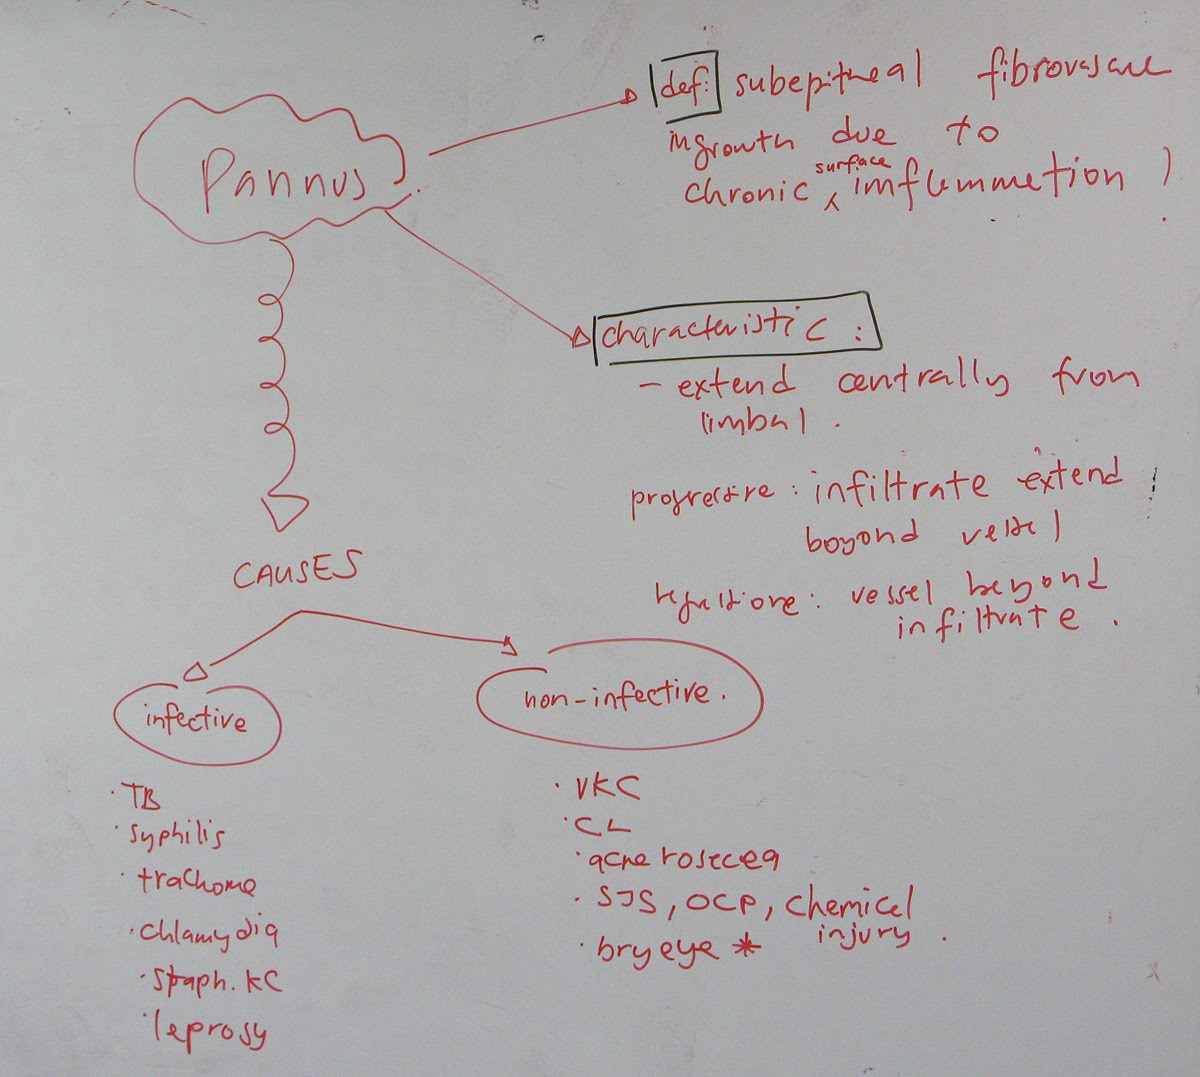 Pannus
def: subepitheal fibrovascue
ingrowth due to
surface
chronic imflammation
characteristic :
- extend centrally from
limbal.
progressive : infiltrate extend
beyond vessel
regressive : vessel beyond
infiltrate.
CAUSES
infective
non-infective.
· TB
· syphilis
· trachoma
· chlamydia
· staph. KC
· leprosy
· VKC
· CL
· acne rosecea
· SJS, OCP, chemical
injury.
· bry eye *